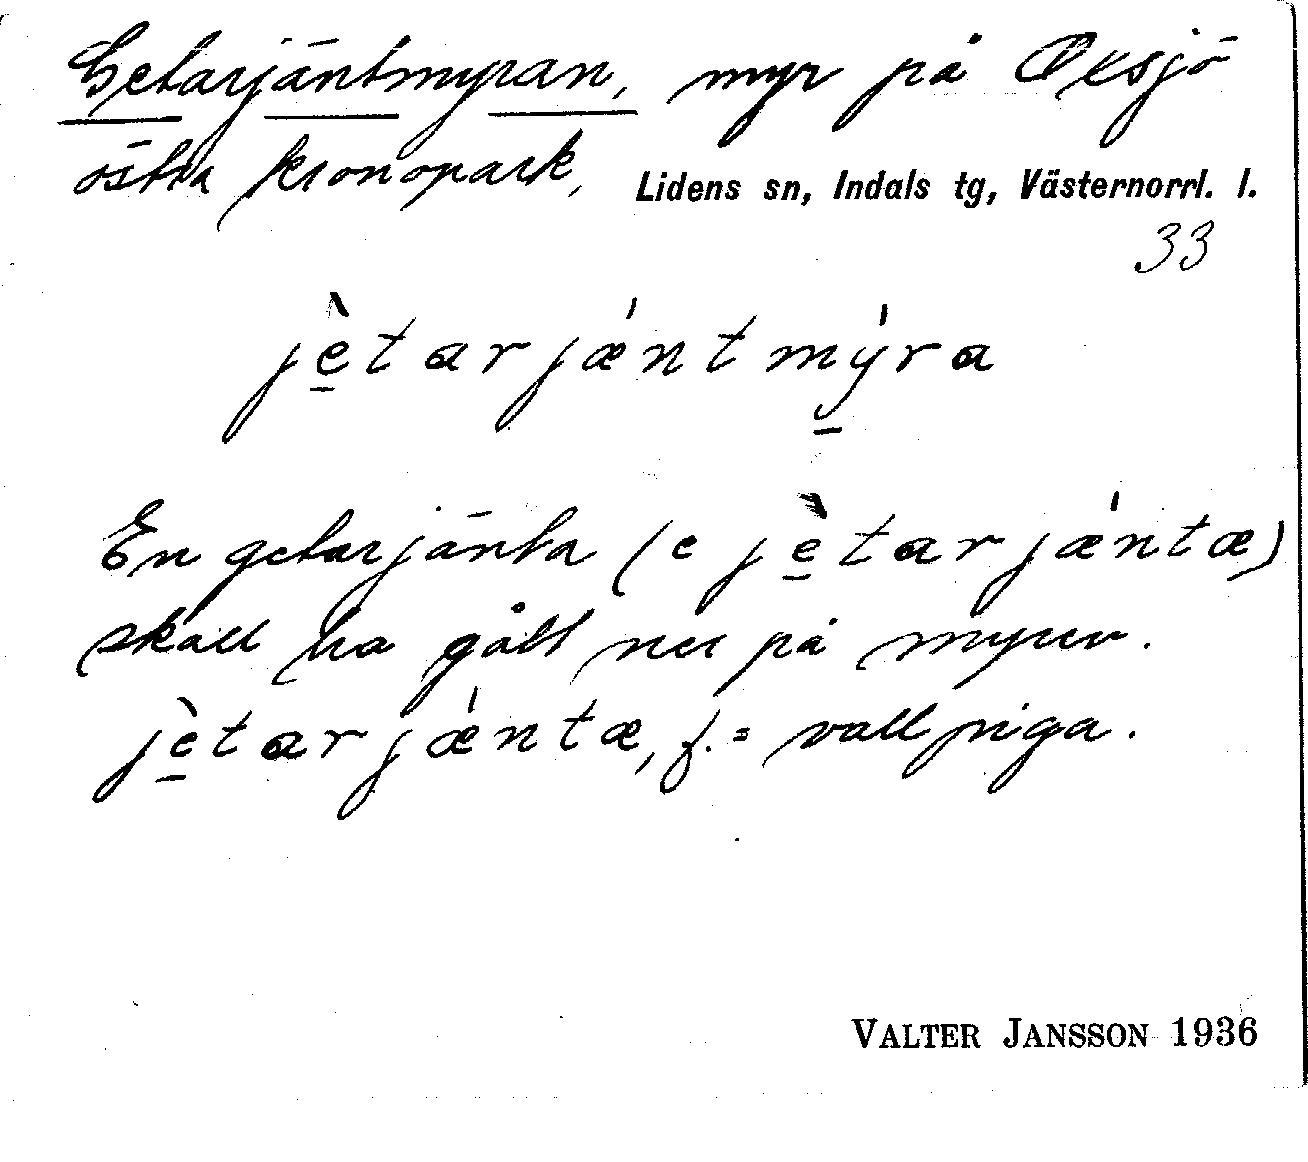 Getarjäntmyran, myr på Oxsjö
östra kronopark, Lidens sn, Indals tg, Västernorrl. l.
33
jè̱tarjǽntmý̱ra
En getarjänta (e jè̱tarjǽntæ)
skall ha gått ner på myren.
jè̱tarjǽntæ, f. = vallpiga.
VALTER JANSSON 1936